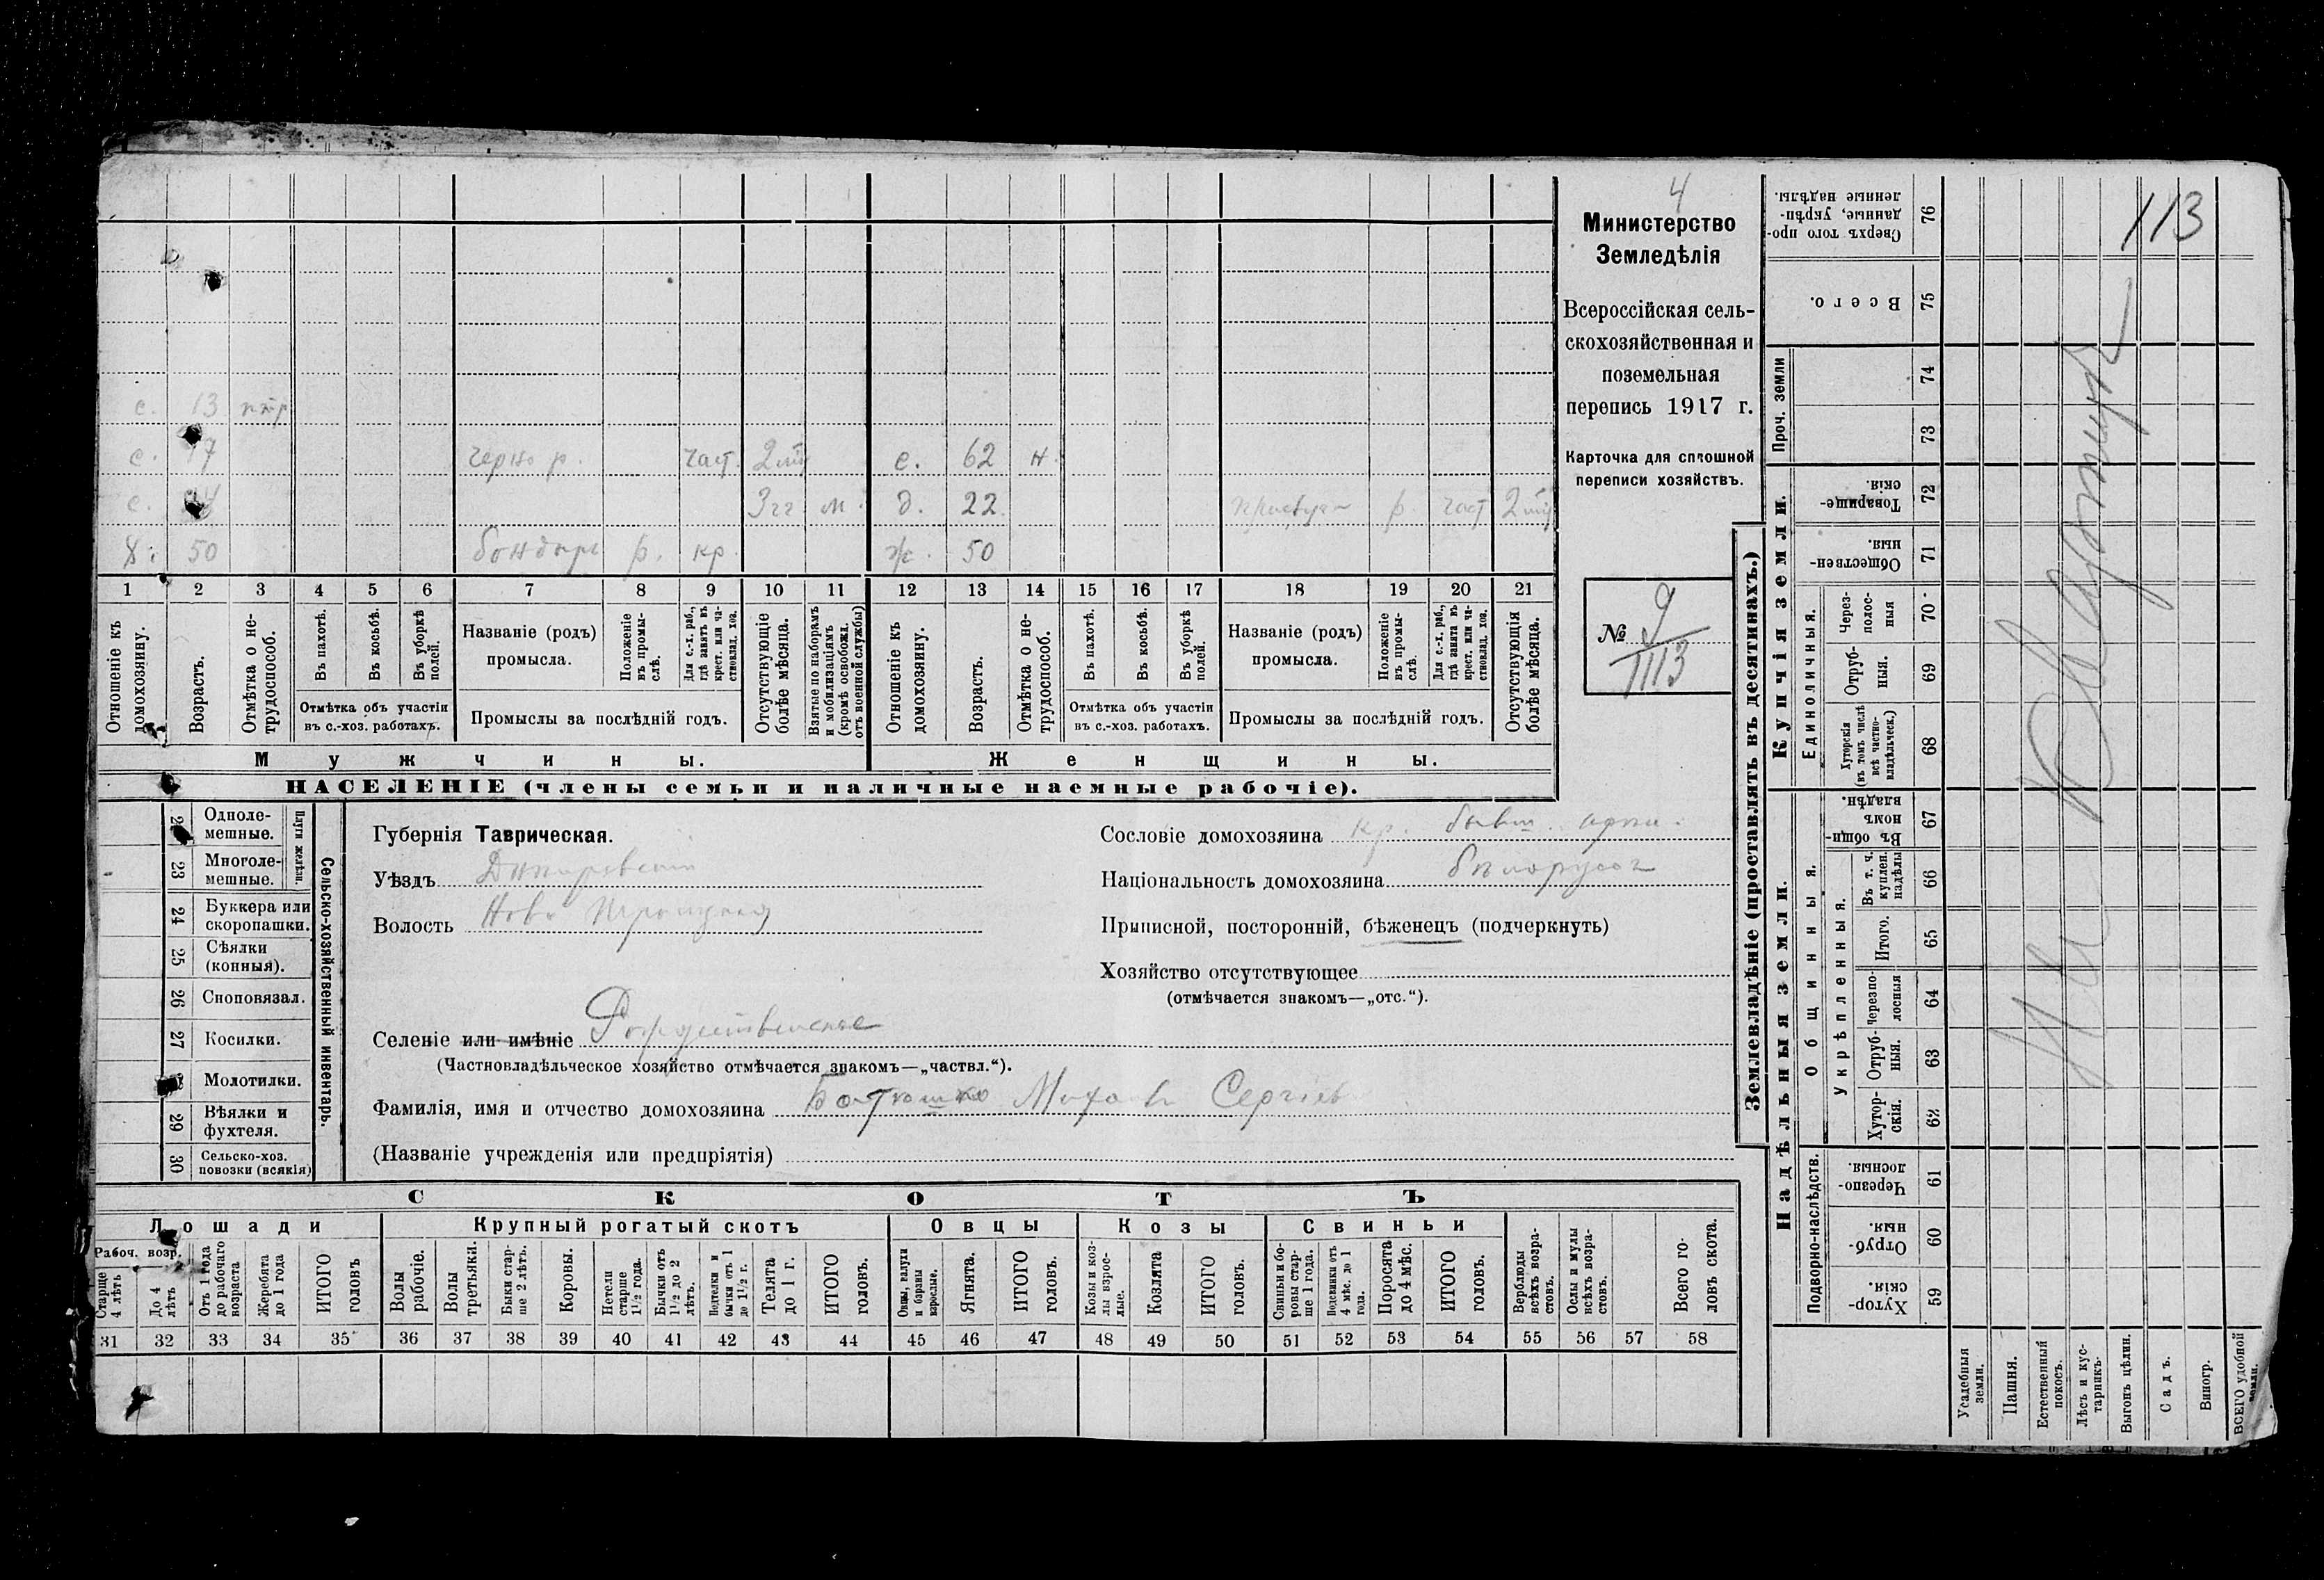 4
113
Министерство
Земледѣлія
Всероссійская сель-
скохозяйственная и
поземельная
перепись 1917 г.
Карточка для сплошной
переписи хозяйствъ.
№ 9
1113
с. 13
с. 17 черно р. част. с. 62 н.
с. м. д. 22. р. част
50 бондарь р. кр. ж. 50
1 2 3 4 5 6 7 8 9 10 11 12 13 14 15 16 17 18 19 20 21
Отношеніе къ домохозяину.
Возрастъ.
Отмѣтка о не-трудоспособ.
Въ пахотѣ.
Въ косьбѣ.
Въ уборкѣ полей.
Отмѣтка объ участіи
въ с.-хоз. работахъ.
Названіе (родъ)
промысла.
Положеніе въ промы-слѣ.
Для с.-х. раб., гдѣ занятъ въ крест. или ча-стновлад. хоз.
Промыслы за послѣдній годъ.
Отсутствующіе болѣе мѣсяца.
Взятые по наборамъ и мобилизаціямъ (кромѣ освобожд. отъ военной службы)
Отношеніе къ домохозяину.
Возрастъ.
Отмѣтка о не-трудоспособ.
Въ пахотѣ.
Въ косьбѣ.
Въ уборкѣ полей.
Отмѣтка объ участіи
въ с.-хоз. работахъ.
Названіе (родъ)
промысла.
Положеніе въ промы-слѣ.
Для с.-х. раб., гдѣ занята въ крест. или ча-стновлад. хоз.
Промыслы за послѣдній годъ.
Отсутствующія болѣе мѣсяца.
Мужчины. Женщины.
НАСЕЛЕНІЕ (члены семьи и наличные наемные рабочіе).
Одноле-мешные.
23 Многоле-мешные.
Плуги желѣзн.
24 Буккера или скоропашки.
25 Сѣялки (конныя).
26 Сноповязал.
27 Косилки.
Молотилки.
29 Вѣялки и фухтеля.
30 Сельско-хоз. повозки (всякія)
Сельско-хозяйственный инвентарь.
Губернія Таврическая.
Уѣздъ Днѣпровскій
Волость Ново Троицкая
Селеніе или имѣніе Рождественское
(Частновладѣльческое хозяйство отмѣчается знакомъ—„частвл.“).
Фамилія, имя и отчество домохозяина Сергѣев
(Названіе учрежденія или предпріятія)
Сословіе домохозяина кр. бывш.
Національность домохозяина бѣлорусъ
Приписной, посторонній, бѣженецъ (подчеркнуть)
Хозяйство отсутствующее
(отмѣчается знакомъ—„отс.“).
СКОТЪ
Лошади Крупный рогатый скотъ Овцы Козы Свиньи
Рабоч. возр.
Старше 4 лѣтъ
До 4 лѣтъ
Отъ 1 года до рабочаго возраста
Жеребята до 1 года
ИТОГО головъ
Волы рабочіе.
Волы третьяки.
Быки стар-ше 2 лѣтъ.
Коровы.
Нетели старше 1½ года.
Бычки отъ 1½ до 2 лѣтъ.
Подтелки и бычки отъ 1 до 1½ г.
Телята до 1 г.
ИТОГО головъ.
Овцы, валухи и бараны взрослые.
Ягнята.
ИТОГО головъ.
Козы и коз-лы взрос-лые.
Козлята
ИТОГО головъ.
Свиньи и бо-ровы стар-ше 1 года.
Подсвинки отъ 4 мѣс. до 1 года.
Поросята до 4 мѣс.
ИТОГО головъ.
Верблюды всѣхъ возра-стовъ.
Ослы и мулы всѣхъ возра-стовъ.
Всего го-ловъ скота.
31 32 33 34 35 36 37 38 39 40 41 42 43 44 45 46 47 48 49 50 51 52 53 54 55 56 57 58
Землевладѣніе (проставлять въ десятинахъ.)
Купчія земли.
Надѣльныя земли.
Сверхъ того про-данные, укрѣп-ленные надѣлы. 76
Всего. 75
Проч. земли 74 73
Товарище-скія. 72
Обществен-ныя. 71
Единоличныя.
Через-полос-ныя 70
Отруб-ныя. 69
Хуторскія (въ томъ числѣ всѣ частно-владѣльческ.) 68
Общинныя.
Въ общин-номъ владѣн. 67
Укрѣпленныя.
Въ т. ч. куплен. надѣлы 66
Итого. 65
Черезпо-лосныя 64
Отруб-ныя. 63
Хутор-скія. 62
Подворно-наслѣдств.
Черезпо-лосныя. 61
Отруб-ныя. 60
Хутор-скія. 59
Усадебныя земли.
Пашня.
Естественный покосъ.
Лѣсъ и кус-тарникъ.
Выгонъ цѣлин.
Садъ.
Виногр.
ВСЕГО удобной земли.